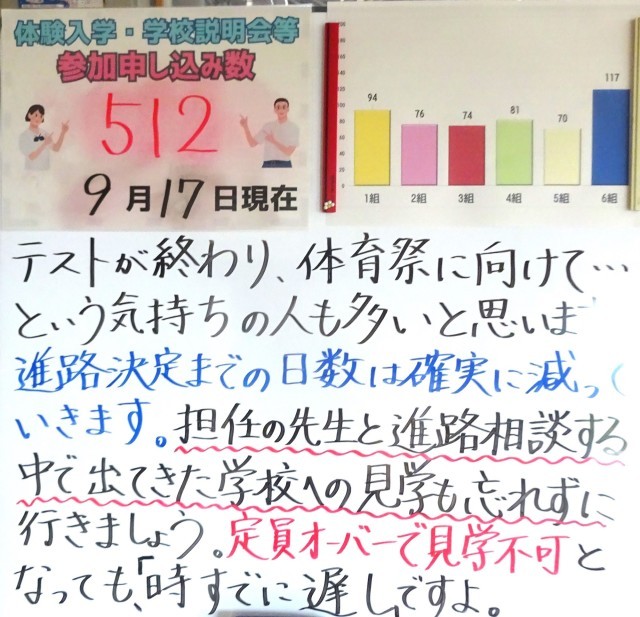 体験入学・学校説明会等
参加申し込み数
512
9月17日現在
94
76
74
81
70
117
1組
2組
3組
4組
5組
6組
テストが終わり、体育祭に向けて…
という気持ちの人も多いと思いま
進路決定までの日数は確実に減っ
いきます。担任の先生と進路相談する
中で出てきた学校への見学も忘れずに
行きましょう。定員オーバーで見学不可と
なっても、「時すでに遅し」ですよ。